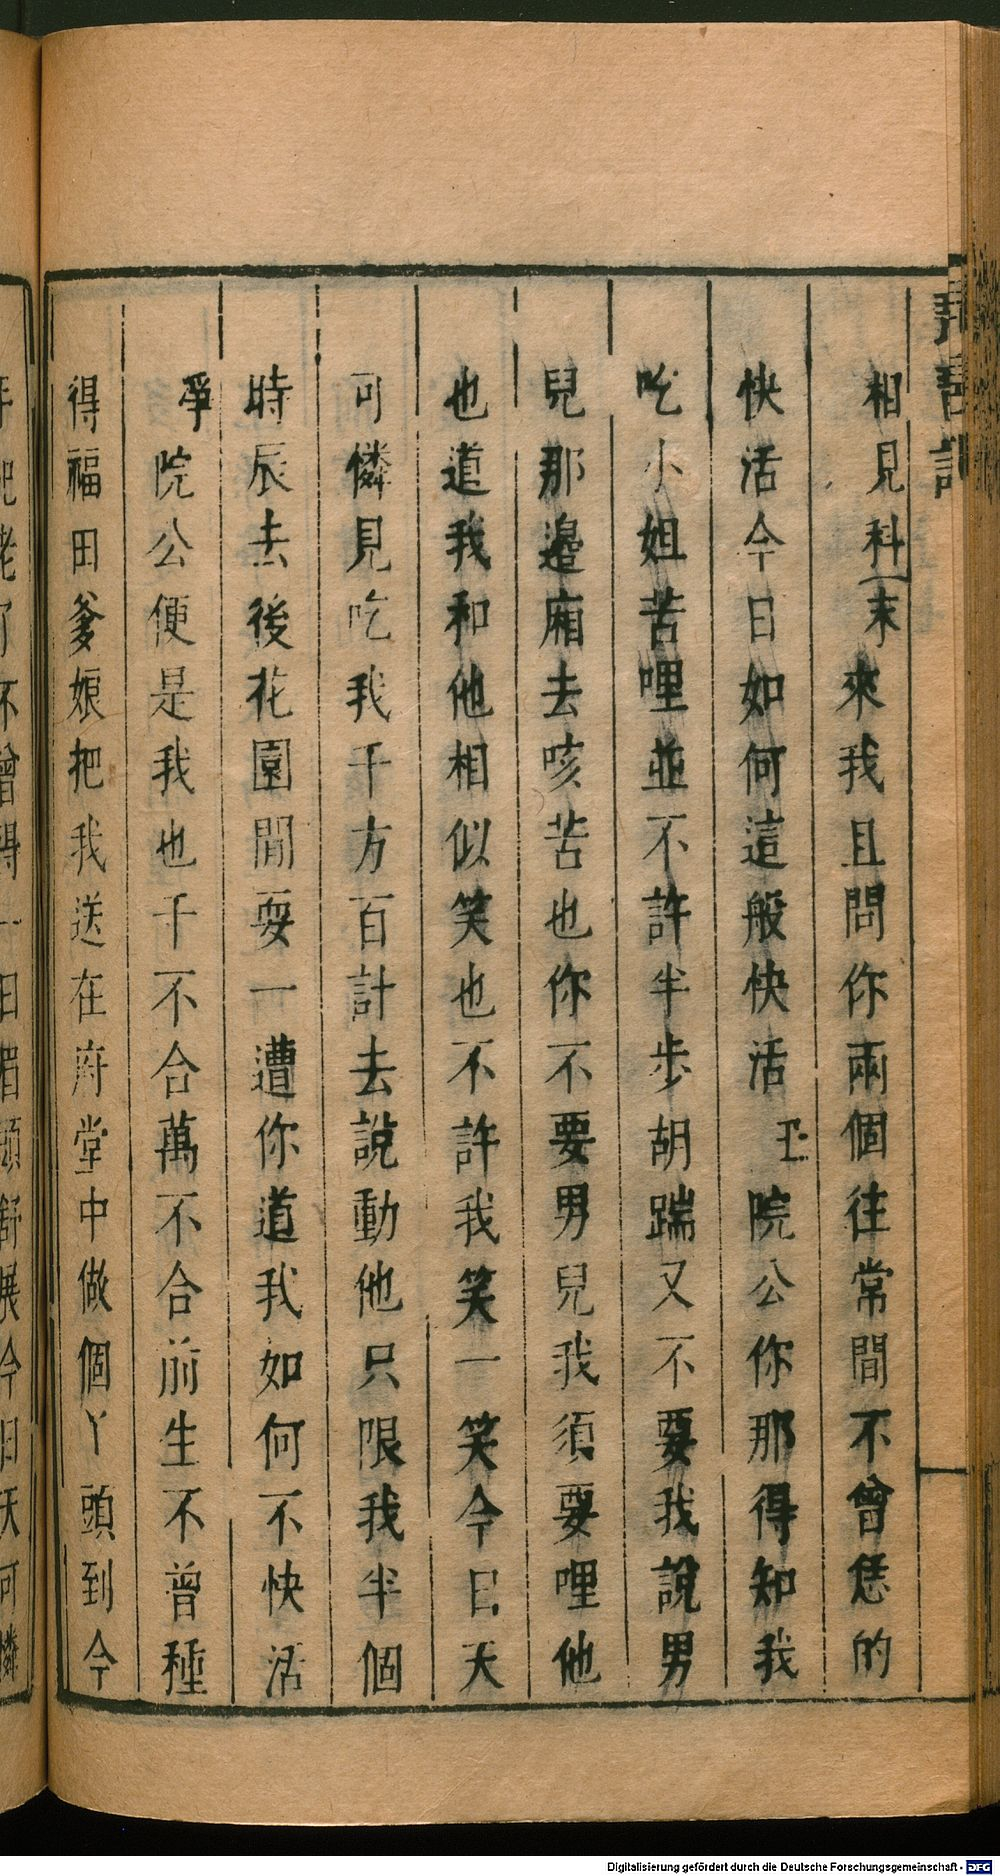 相見科末來我且問你兩個往常間不曾恁的
快活今日如何這般快活丑院公你那得知我
吃小姐苦哩並不許半步胡踹又不要我說男
兒那邊廂去咳苦也你不要男兒我須要哩他
也道我和他相似笑也不許我笑一笑今日天
可憐見吃我千方百計去說動他只限我半個
時辰去後花園閒耍一遭你道我如何不快活
爭院公便是我也千不合萬不合前生不曾種
得福田爹娘把我送在府堂中做個丫頭到今
年紀老了不曾得一日眉頭舒展今日天可憐
Digitalisierung gefördert durch die Deutsche Forschungsgemeinschaft - DFG